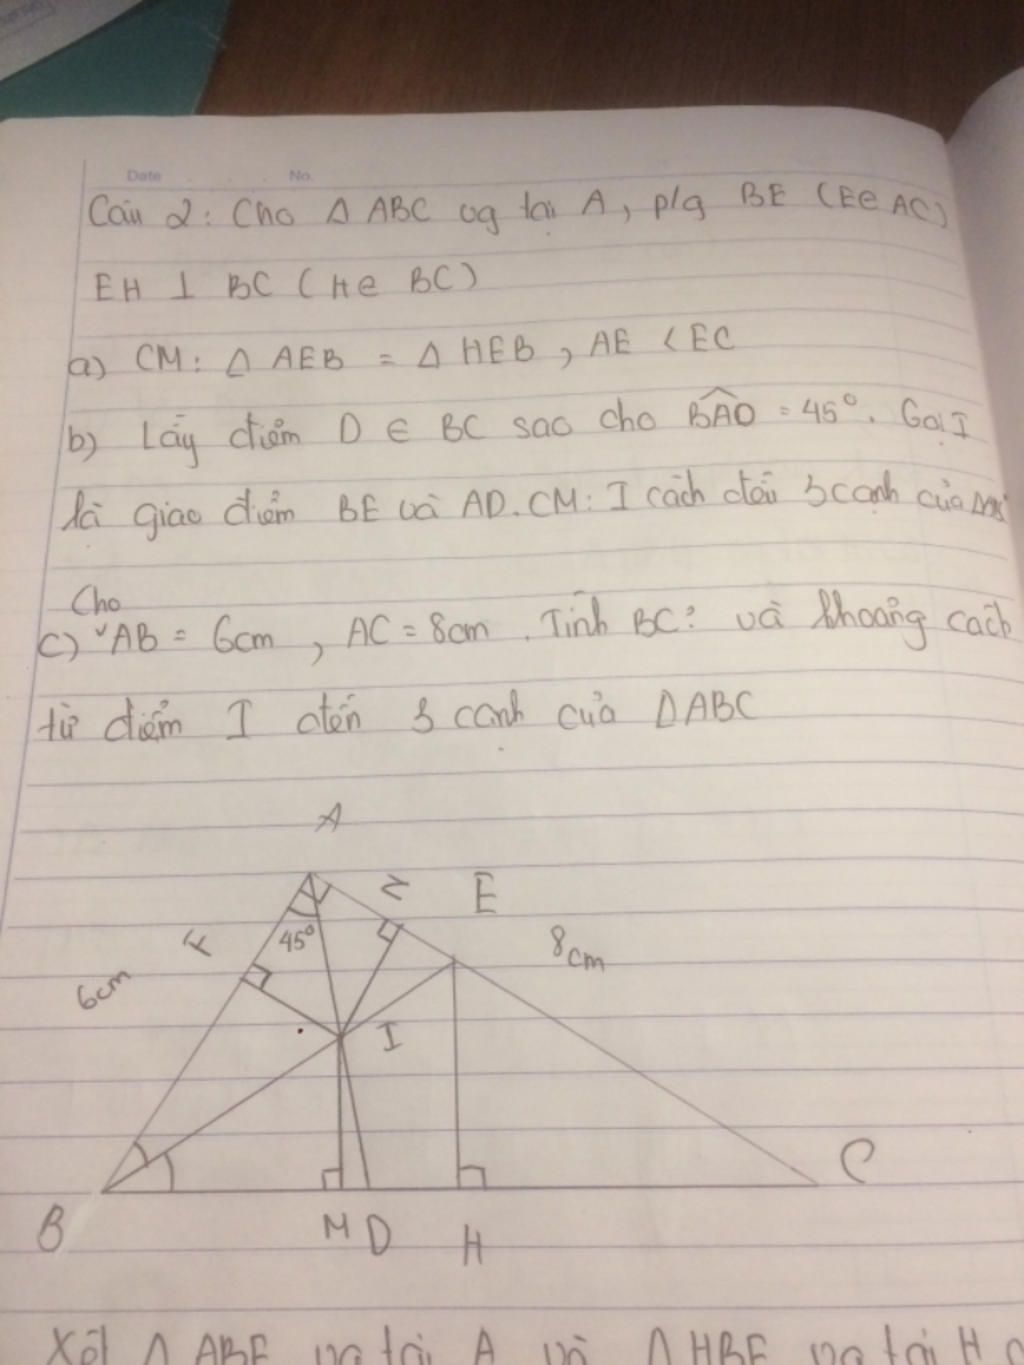 Date No.
Câu 2: Cho Δ ABC vg tại A, p/g BE (E∈ AC)
EH ⊥ BC (H∈ BC)
a) CM: Δ AEB = Δ HEB, AE < EC
b) Lấy điểm D ∈ BC sao cho BAD = 45°. Gọi I
là giao điểm BE và AD. CM: I cách đều 3 cạnh của
Cho
c) AB = 6cm, AC = 8cm. Tính BC? và khoảng cách
từ điểm I đến 3 cạnh của ΔABC
A
N E
F 45° 8cm
6cm
I
C
B M D H
Xét Δ ABE vg tại A và Δ HBE vg tại H